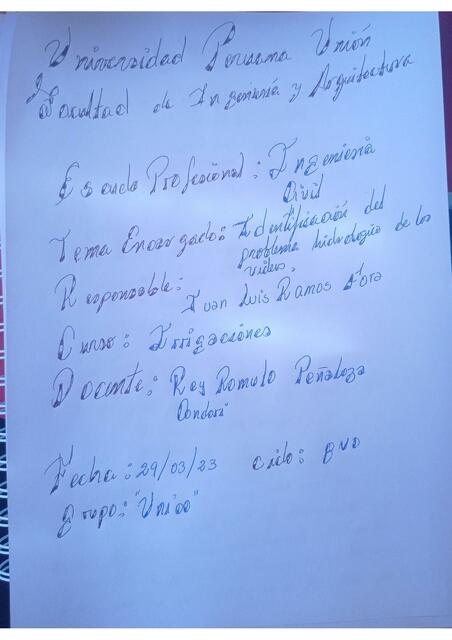 Universidad Peruana Unión
Facultad de Ingeniería y Arquitectura
Escuela Profesional: Ingeniería
Civil
Tema Encargado: Identificación del
problema hidrologico de los
videos.
Responsable:
Juan Luis Ramos
Curso: Irrigaciones
Docente: Rey Romulo Peñaloza
Condori
Fecha: 29/03/23 ciclo:
Grupo: "Unico"